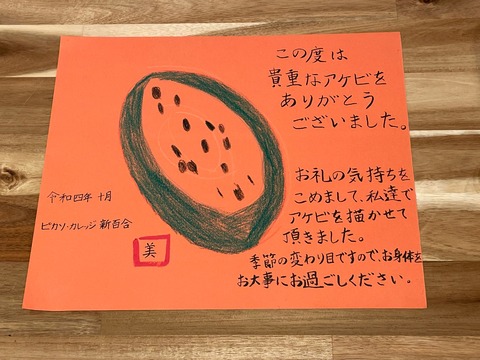 この度は
貴重なアケビを
ありがとう
ございました。
お礼の気持ちを
こめまして、私達で
アケビを描かせて
頂きました。
季節の変わり目ですので、お身体を
お大事にお過ごしください。
令和四年 十月
ピカソ・カレッジ 新百合
美